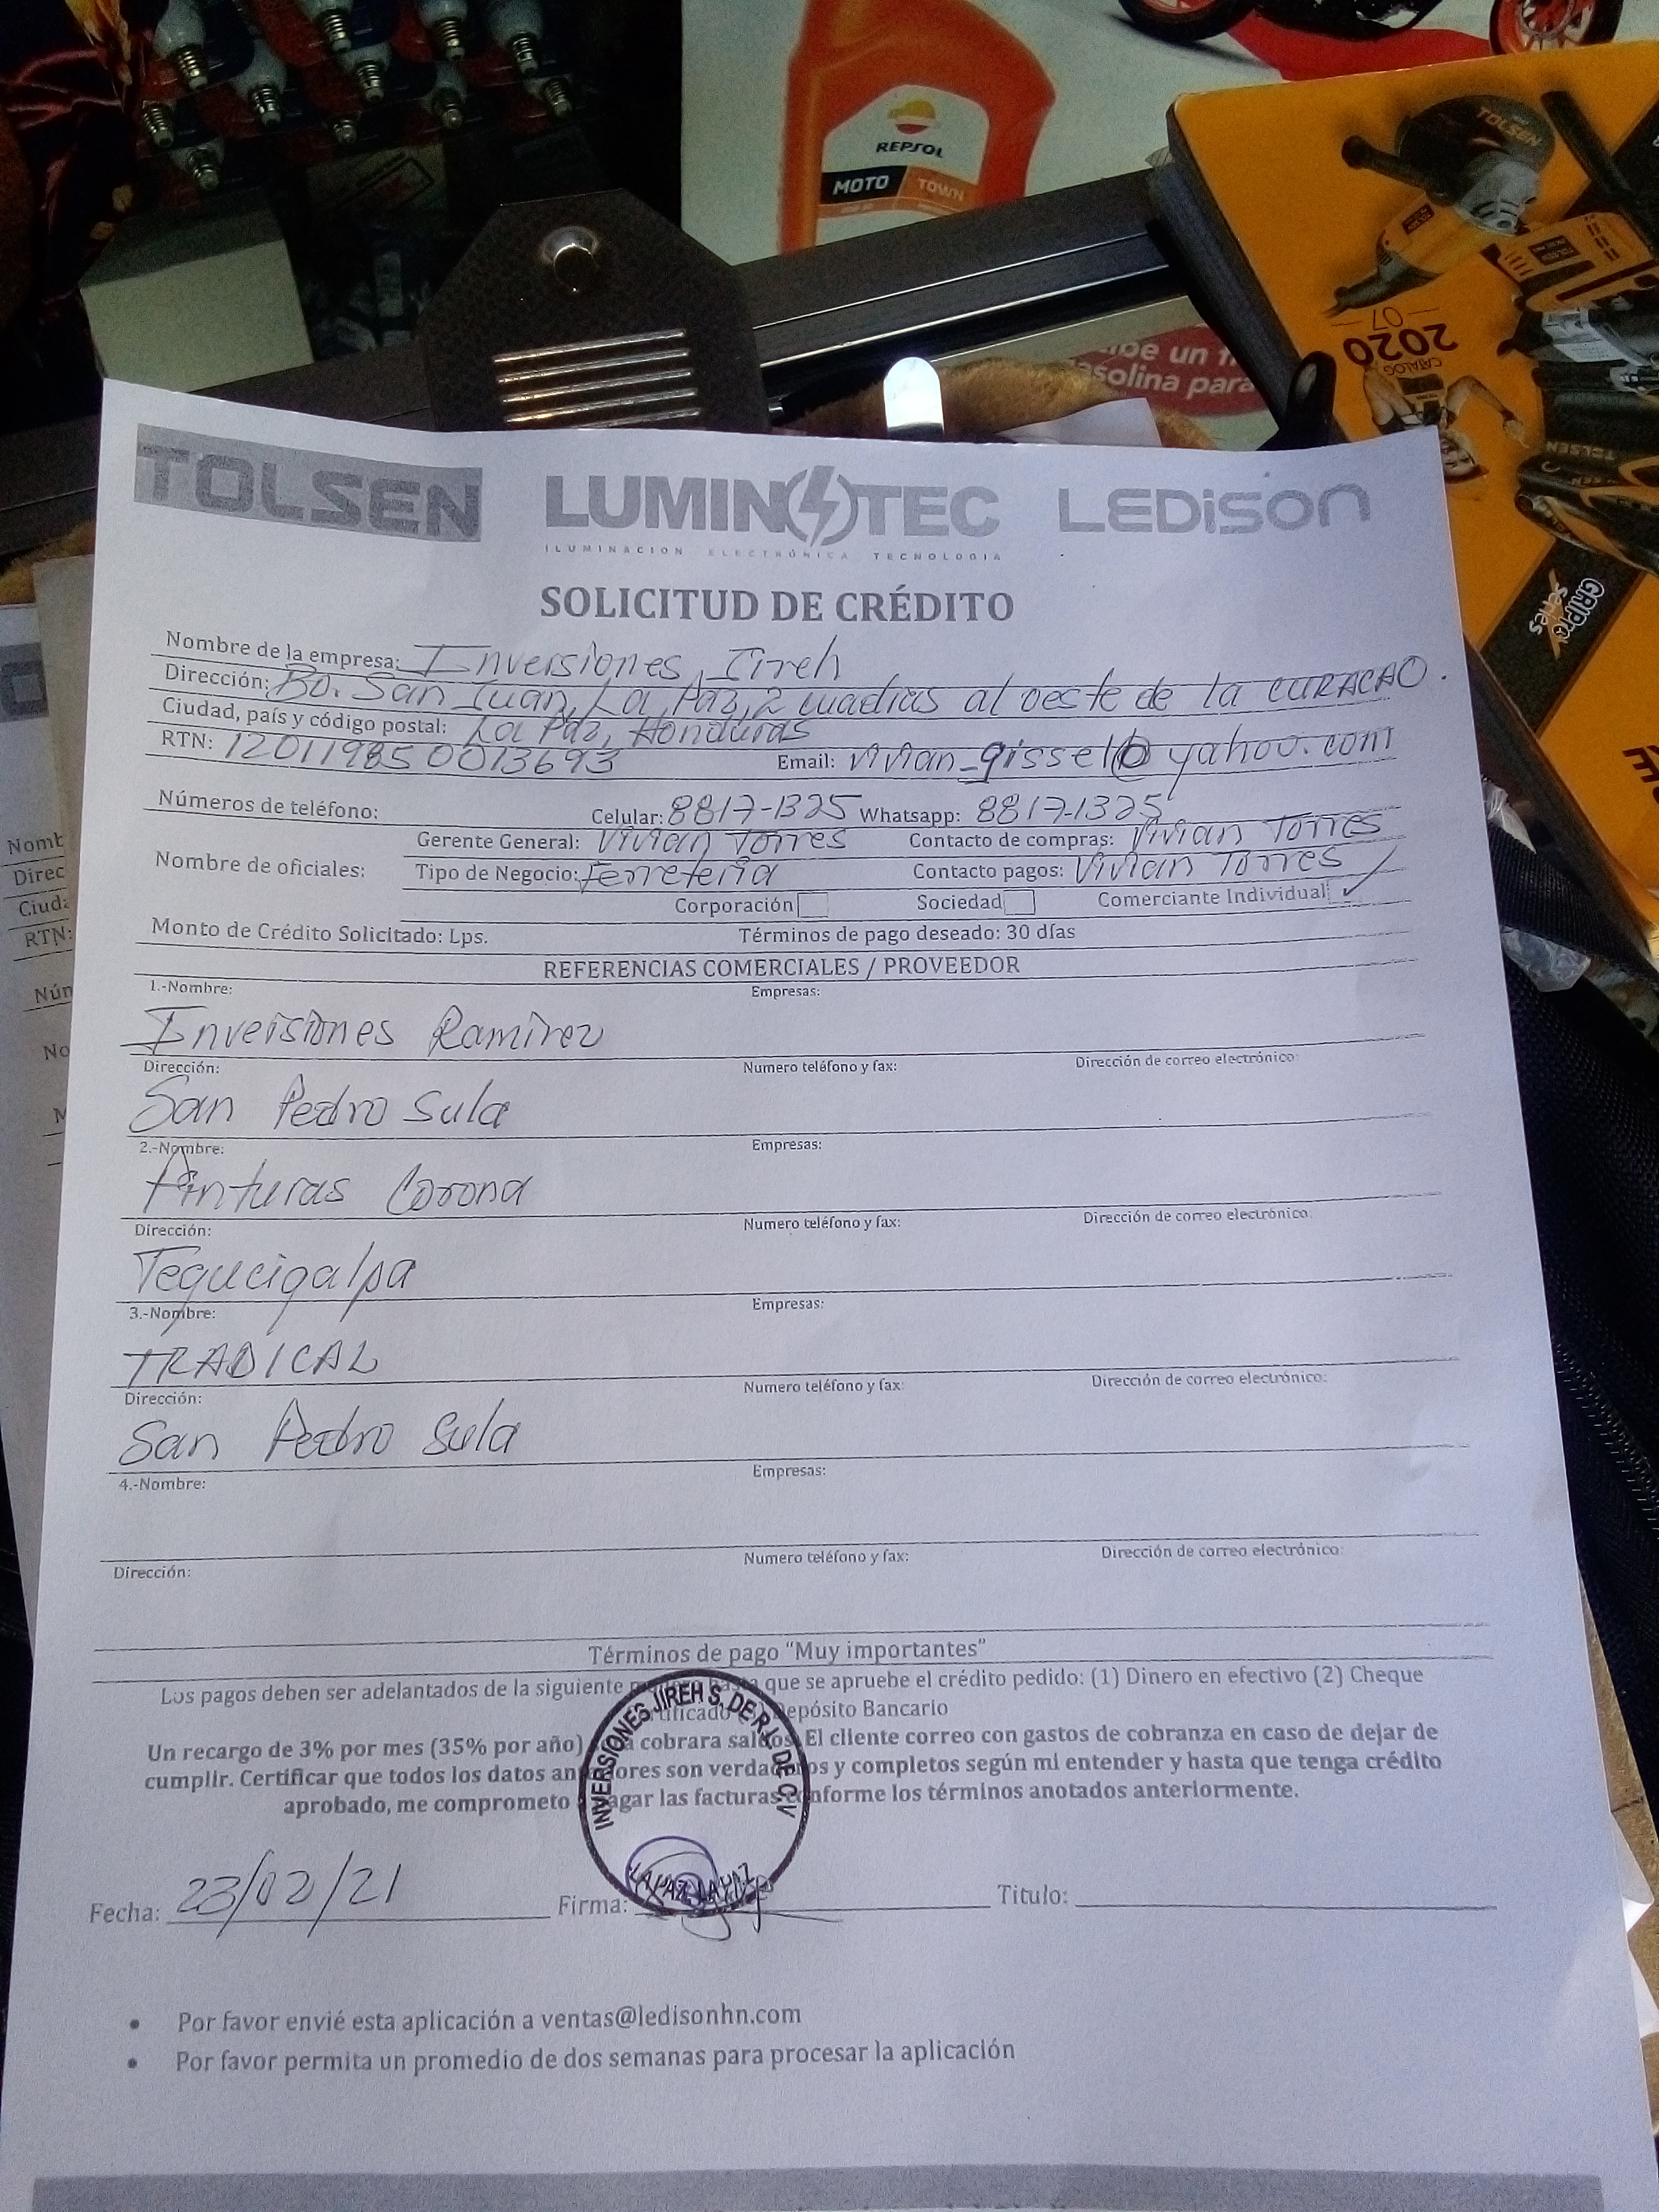 REPSOL
MOTO TOWN
TOLSEN
07
2020
CATALOG
TOLSEN
GRIPro
series
be un
asolina para
TOLSEN LUMINOTEC LEDISON
ILUMINACION ELECTRÓNICA TECNOLOGIA
SOLICITUD DE CRÉDITO
Nombre de la empresa: Inversiones Jireh
Dirección: Bo. San Juan, La Paz, 2 cuadras al oeste de la CURACAO.
Ciudad, país y código postal: La Paz, Honduras
RTN: Email: vivian_gissel@yahoo.com
Números de teléfono: Celular: 8817-1325 Whatsapp: 8817-1325
Gerente General: Vivian Torres Contacto de compras: Vivian Torres
Nombre de oficiales: Tipo de Negocio: Ferretería Contacto pagos: Vivian Torres
Corporación Sociedad Comerciante Individual ✓
Monto de Crédito Solicitado: Lps. Términos de pago deseado: 30 días
REFERENCIAS COMERCIALES / PROVEEDOR
1.-Nombre: Empresas:
Inversiones Ramirez
Dirección: Numero teléfono y fax: Dirección de correo electrónico:
San Pedro Sula
2.-Nombre: Empresas:
Pinturas Corona
Dirección: Numero teléfono y fax: Dirección de correo electrónico:
Tegucigalpa
3.-Nombre: Empresas:
TRADICAL
Dirección: Numero teléfono y fax: Dirección de correo electrónico:
San Pedro Sula
4.-Nombre: Empresas:
Dirección: Numero teléfono y fax: Dirección de correo electrónico:
Términos de pago “Muy importantes”
Los pagos deben ser adelantados de la siguiente que se apruebe el crédito pedido: (1) Dinero en efectivo (2) Cheque
Depósito Bancario
Un recargo de 3% por mes (35% por año) cobrara saldos. El cliente correo con gastos de cobranza en caso de dejar de
cumplir. Certificar que todos los datos anteriores son verdaderos y completos según mi entender y hasta que tenga crédito
aprobado, me comprometo a pagar las facturas conforme los términos anotados anteriormente.
INVERSIONES JIREH S. DE R.L. DE C.V
LA PAZ, LA PAZ
Fecha: 23/02/21 Firma: Titulo:
• Por favor envié esta aplicación a ventas@ledisonhn.com
• Por favor permita un promedio de dos semanas para procesar la aplicación